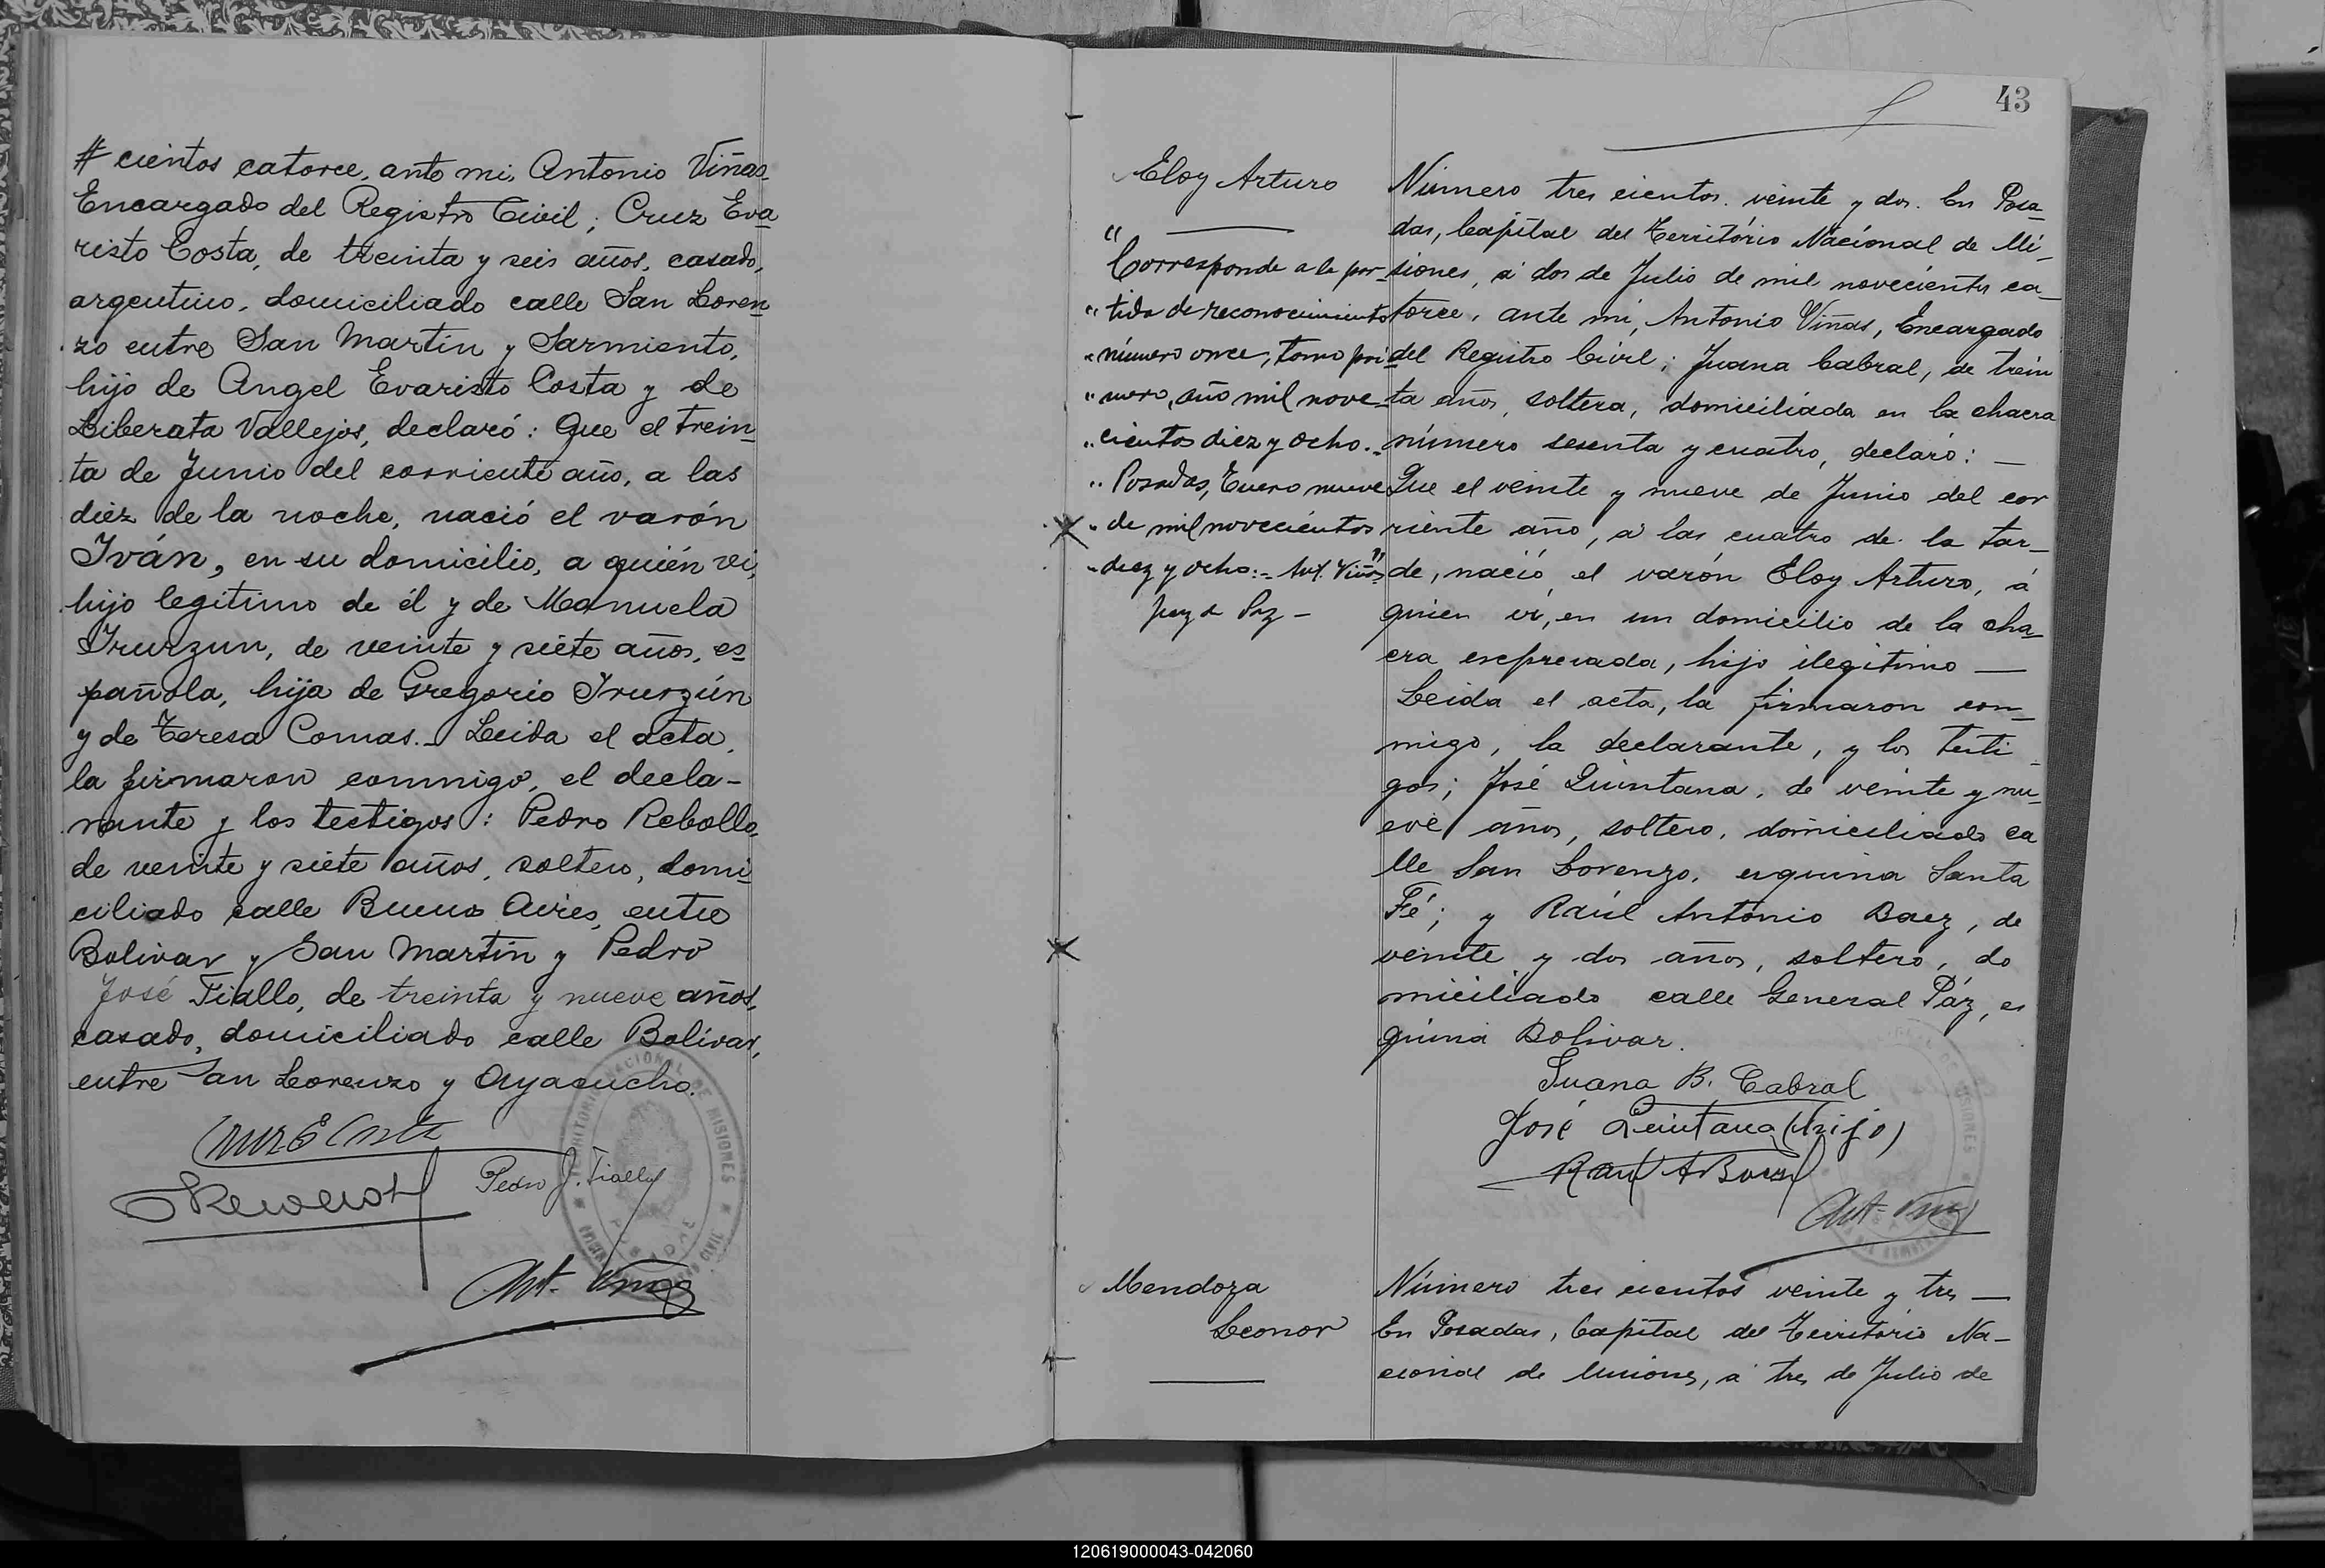 # cientos catorce, ante mi, Antonio Viñas,
Encargado del Registro Civil; Cruz Eva-
risto Costa, de treinta y seis años, casado,
argentino, domiciliado calle San Loren-
zo entre San Martin y Sarmiento,
hijo de Angel Evaristo Costa y de
Liberata Vallejos, declaró: Que el trein-
ta de Junio del corriente año, a las
diez de la noche, nació el varón
Iván, en su domicilio, a quién ví,
hijo legítimo de él y de Manuela
Irurzun, de veinte y siete años, es-
pañola, hija de Gregorio Irurzún
y de Teresa Comas. - Leida el acta,
la firmaron conmigo, el decla-
rante y los testigos: Pedro Rebollo,
de veinte y siete años, soltero, domi-
ciliado calle Buenos Aires, entre
Bolivar y San Martin y Pedro
José Fiallo, de treinta y nueve años,
casado, domiciliado calle Bolívar,
entre San Lorenzo y Ayacucho.
Cruz E Costa
Pedro J. Fiallo
Ant. Viñas
TERRITORIO NACIONAL DE MISIONES
POSADAS
43
Eloy Arturo
"Corresponde a la par-
"tida de reconocimiento
"número once, tomo pri-
"mero, año mil nove-
"cientos diez y ocho.-
"Posadas, Enero nueve
"de mil novecientos
"diez y ocho:- Ant. Viñas"
juez de Paz -
Número tres cientos veinte y dos. En Posa-
das, Capital del Território Nacional de Mi-
siones, á dos de Julio de mil novecientos ca-
torce, ante mí, Antonio Viñas, Encargado
del Registro Civil; Juana Cabral, de trein
ta años, soltera, domiciliada en la chacra
número sesenta y cuatro, declaró: —
Que el veinte y nueve de Junio del cor
riente año, á las cuatro de la tar-
de, nació el varón Eloy Arturo, á
quien ví, en un domicilio de la cha-
cra expresada, hijo ilegítimo —
Leida el acta, la firmaron con-
migo, la declarante, y los testi-
gos; José Quintana, de veinte y nu-
eve años, soltero, domiciliado ca
lle San Lorenzo, esquina Santa
Fé; y Raúl Antonio Baez, de
veinte y dos años, soltero, do
miciliado calle General Páz, es
quina Bolivar.
Juana B. Cabral
José Quintana (hijo)
Raul A Baez
Ant. Viñas
Mendoza
Leonor
Número tres cientos veinte y tres —
En Posadas, Capital del Território Na-
cional de Misiones, á tres de Julio de
120619000043-042060